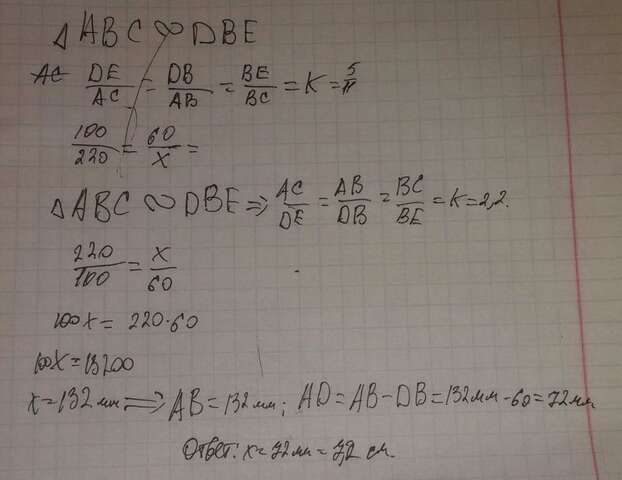 △ABC ∾ DBE
AC DE/AC = DB/AB = BE/BC = K = 5/11
100/220 = 60/x =
△ABC ∾ DBE ⇒ AC/DE = AB/DB = BC/BE = K = 2,2.
220/100 = x/60
100x = 220·60
100x = 13200
x = 132 мм ⇒ AB = 132 мм; AD = AB - DB = 132 мм - 60 = 72 мм
Ответ: x = 72 мм = 7,2 см.